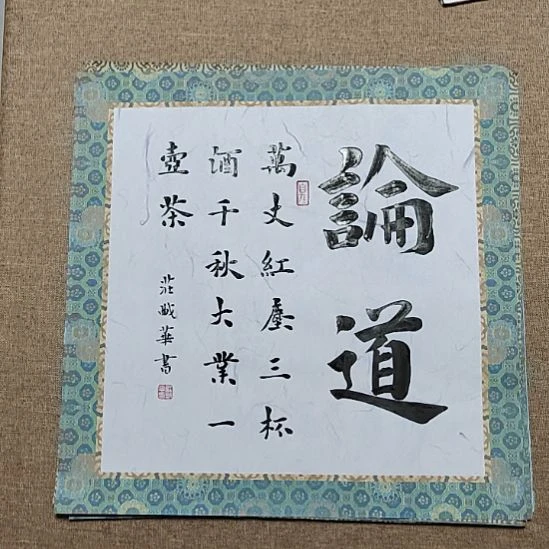 論道
萬丈紅塵三杯
酒千秋大業一
壺茶
莊戰華書